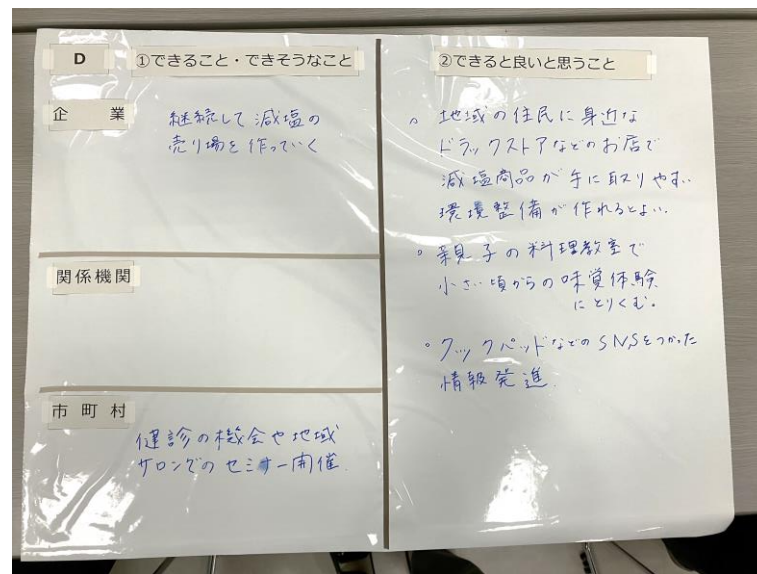 D
①できること・できそうなこと
企 業
継続して減塩の
売り場を作っていく
関係機関
市 町 村
健診の機会や地域
サロンでのセミナー開催.
②できると良いと思うこと
。地域の住民に身近な
ドラックストアなどのお店で
減塩商品が手に取りやすい
環境整備が作れるとよい.
。親子の料理教室で
小さい頃からの味覚体験
にとりくむ。
。クックパッドなどのSNSをつかった
情報発進.